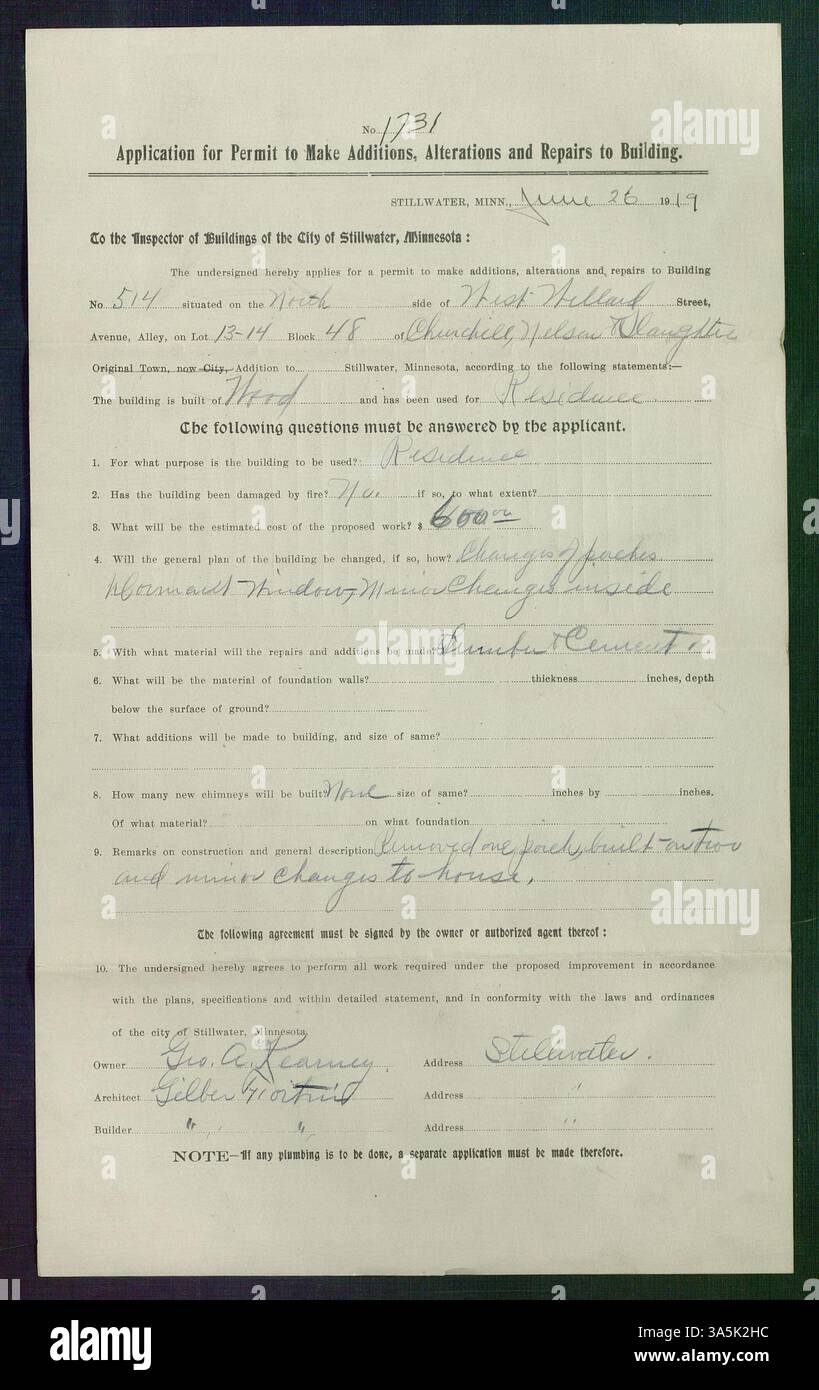 No. 1731
Application for Permit to Make Additions, Alterations and Repairs to Building.
STILLWATER, MINN., June 26 1919
To the Inspector of Buildings of the City of Stillwater, Minnesota:
The undersigned hereby applies for a permit to make additions, alterations and repairs to Building
No 514 situated on the North side of West Willard Street,
Avenue, Alley, on Lot 13-14 Block 48 of Churchill, Nelson & Slaughter
Original Town, now City, Addition to Stillwater, Minnesota, according to the following statements:—
The building is built of Wood and has been used for Residence
The following questions must be answered by the applicant.
1. For what purpose is the building to be used? Residence
2. Has the building been damaged by fire? No. if so, to what extent?
3. What will be the estimated cost of the proposed work? $ 600.00
4. Will the general plan of the building be changed, if so, how? Changes of porches
Window, Minor Changes inside
5. With what material will the repairs and additions be made? Lumber & Cement
6. What will be the material of foundation walls? thickness inches, depth
below the surface of ground?
7. What additions will be made to building, and size of same?
8. How many new chimneys will be built? None size of same? inches by inches.
Of what material? on what foundation
9. Remarks on construction and general description Removed one porch, built on two
and minor changes to house.
The following agreement must be signed by the owner or authorized agent thereof:
10. The undersigned hereby agrees to perform all work required under the proposed improvement in accordance
with the plans, specifications and within detailed statement, and in conformity with the laws and ordinances
of the city of Stillwater, Minnesota.
Owner Geo. A. Kearney. Address Stillwater.
Architect Gilber Address "
Builder " " Address "
NOTE—If any plumbing is to be done, a separate application must be made therefore.
alamy
alamy
alamy
alamy
alamy
alamy
Image ID: 3A5K2HC
www.alamy.com